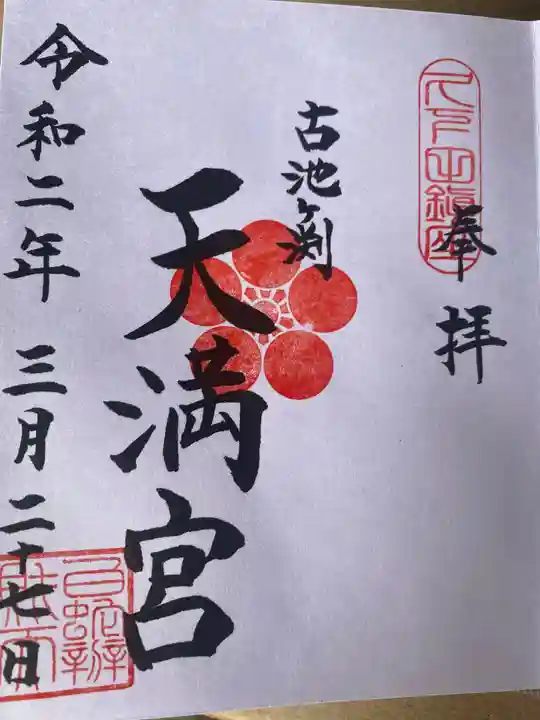 奉拝
古池ヶ渕
天満宮
令和二年三月二十七日